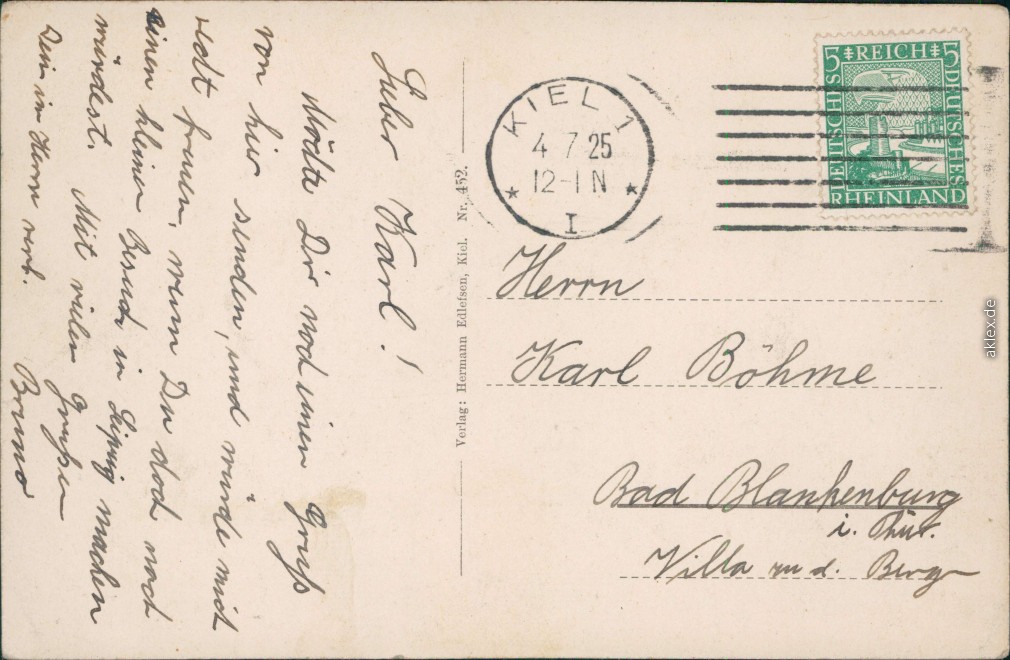 Lieber Karl!
Möchte Dir noch einen Gruß
von hier senden, und würde mich
recht freuen, wenn Du doch noch
einen kleinen Besuch in Leipzig machen
würdest. Mit vielen Grüßen
Dein im Herrn verb.
Bruno
Verlag: Hermann Edlefsen, Kiel. Nr. 452.
KIEL 1
4 7 25
12-1 N
* I *
5 REICH 5
DEUTSCHES
DEUTSCHES
RHEINLAND
Herrn
Karl Böhme
Bad Blankenburg
i. Thür.
Villa d. Berge
aklex.de